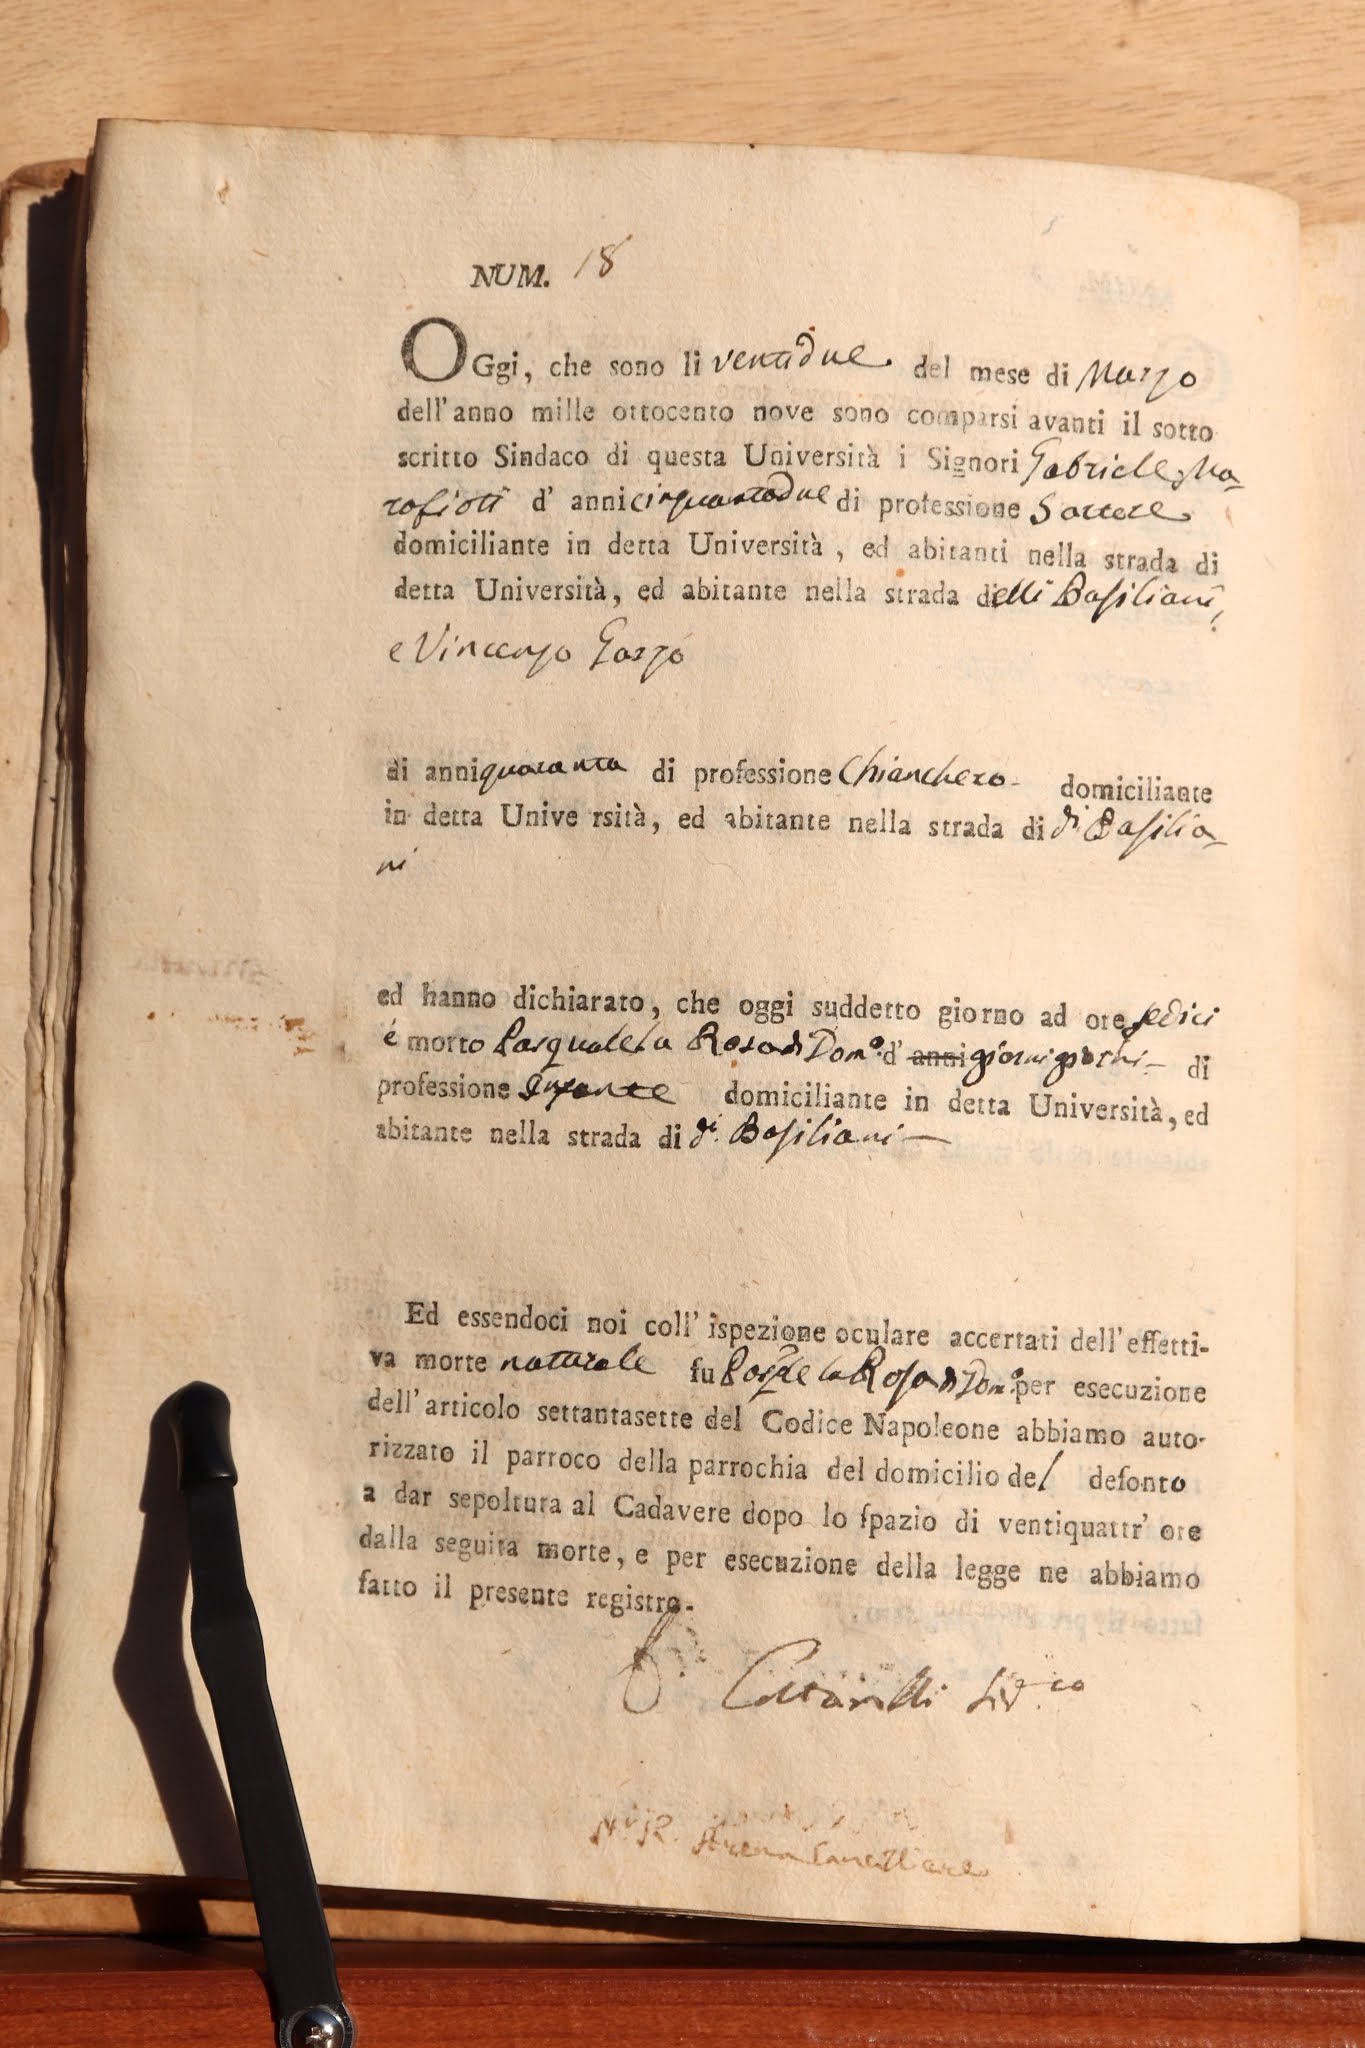 NUM. 18
OGgi, che sono li ventidue del mese di Marzo
dell'anno mille ottocento nove sono comparsi avanti il sotto
scritto Sindaco di questa Università i Signori Gabriele Ma-
rafioti d' anni cinquantadue di professione Sartore
domiciliante in detta Università, ed abitanti nella strada di
detta Università, ed abitante nella strada delli Basiliani,
e Vincenzo Garzo
di anni quaranta di professione Chianchero - domiciliante
in detta Unive rsità, ed abitante nella strada di di Basilia-
ni
ed hanno dichiarato, che oggi suddetto giorno ad ore sedici
é morto Pasquale la Rosa di Dom.o d' anni giorni - di
professione Infante domiciliante in detta Università, ed
abitante nella strada di di Basiliani -
Ed essendoci noi coll' ispezione oculare accertati dell'effetti-
va morte naturale fu Pasqle la Rosa di Dom.o per esecuzione
dell'articolo settantasette del Codice Napoleone abbiamo auto-
rizzato il parroco della parrochia del domicilio del defonto
a dar sepoltura al Cadavere dopo lo spazio di ventiquattr' ore
dalla seguita morte, e per esecuzione della legge ne abbiamo
fatto il presente registro.
Sin.co
Arena Cancelliere